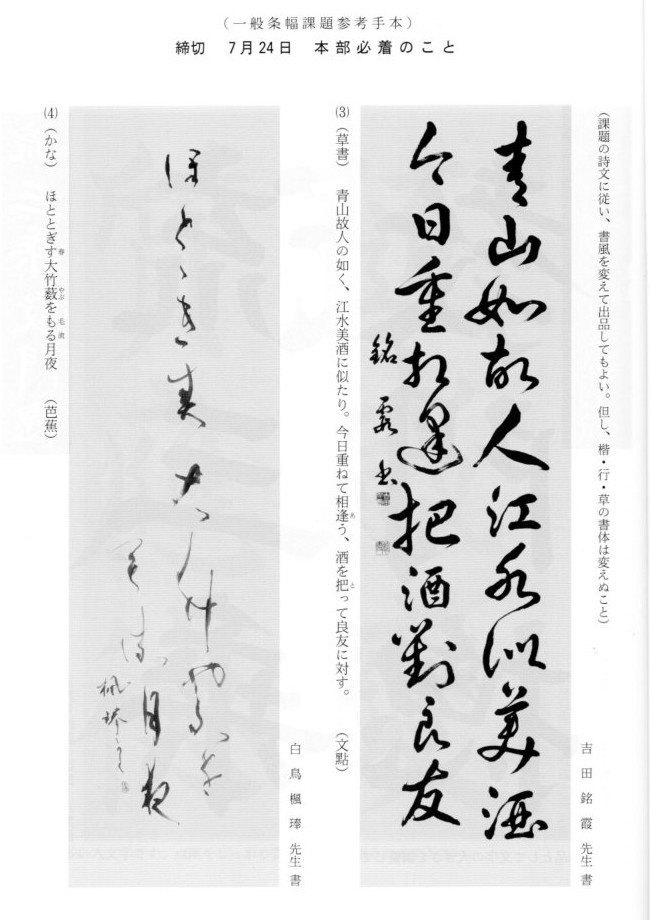 (一般条幅課題参考手本)
締切　7月24日　本部必着のこと
(課題の詩文に従い、書風を変えて出品してもよい。但し、楷・行・草の書体は変えぬこと)
吉田銘霞先生書
青山如故人江水似美酒
今日重相逢把酒對良友
銘霞書
(3)(草書)　青山故人の如く、江水美酒に似たり。今日重ねて相逢う、酒を把って良友に対す。　(文點)
あ
と
白鳥楓琫先生書
ほとゝき春大竹やふを
毛流月夜
(4)(かな)　ほととぎす大竹藪をもる月夜　(芭蕉)
春
やぶ
毛流